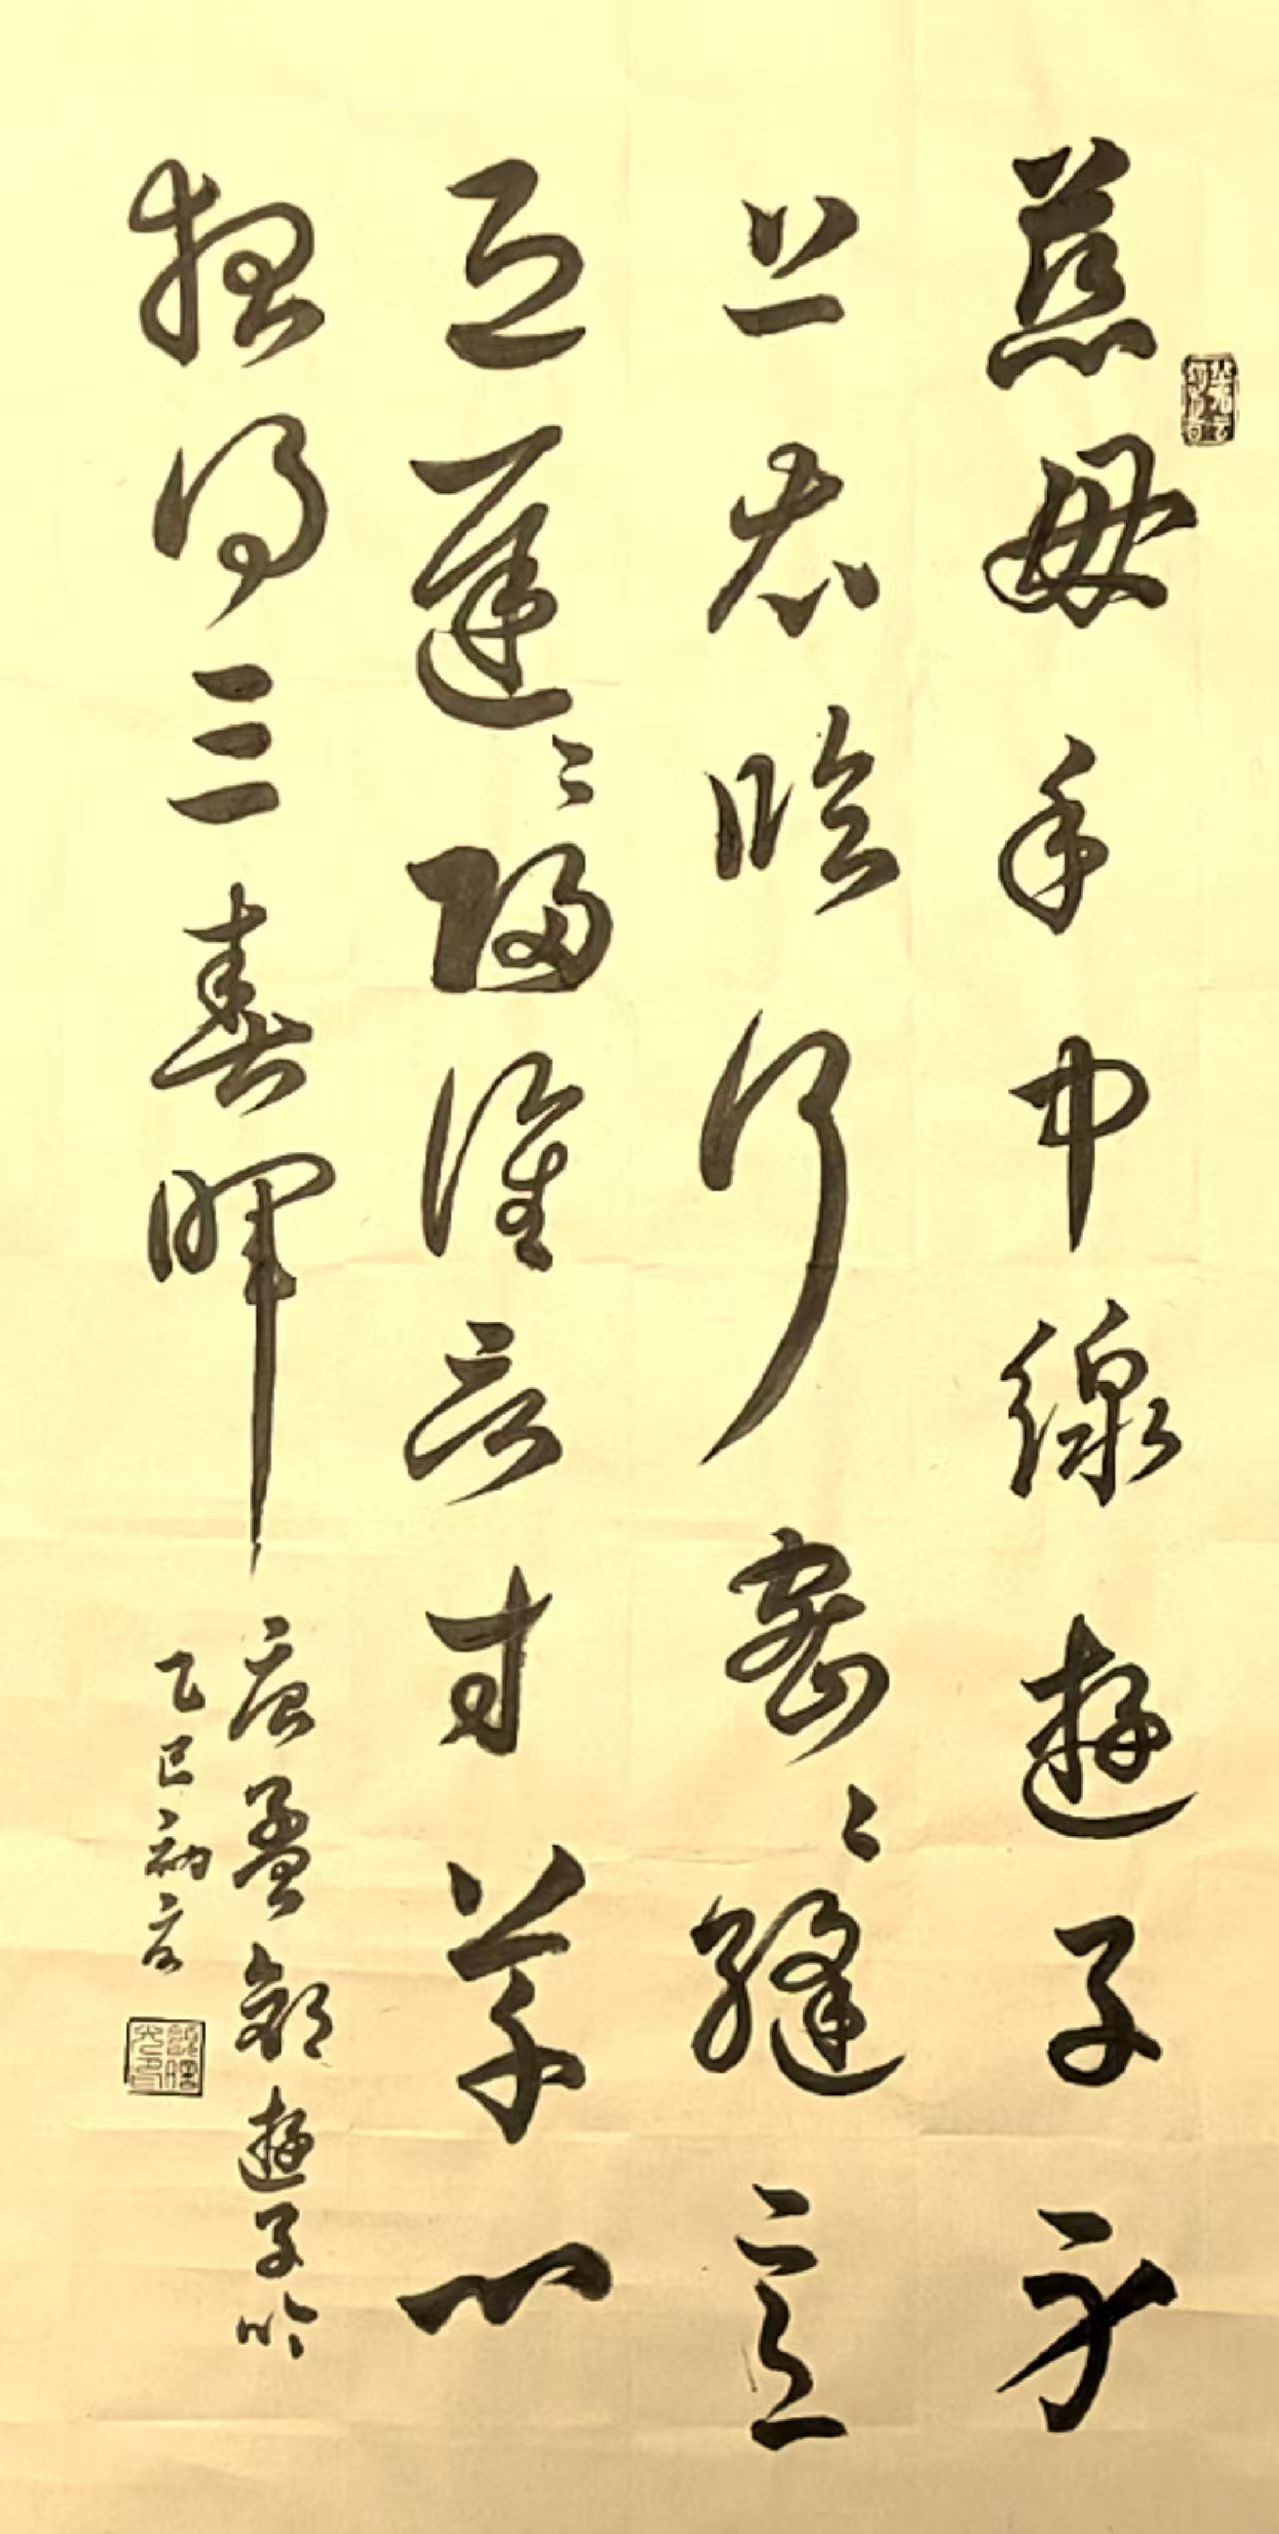 慈母手中線遊子身
上衣臨行密〻縫意
恐遲〻歸誰言寸草心
報得三春暉
唐孟郊遊子吟
乙巳